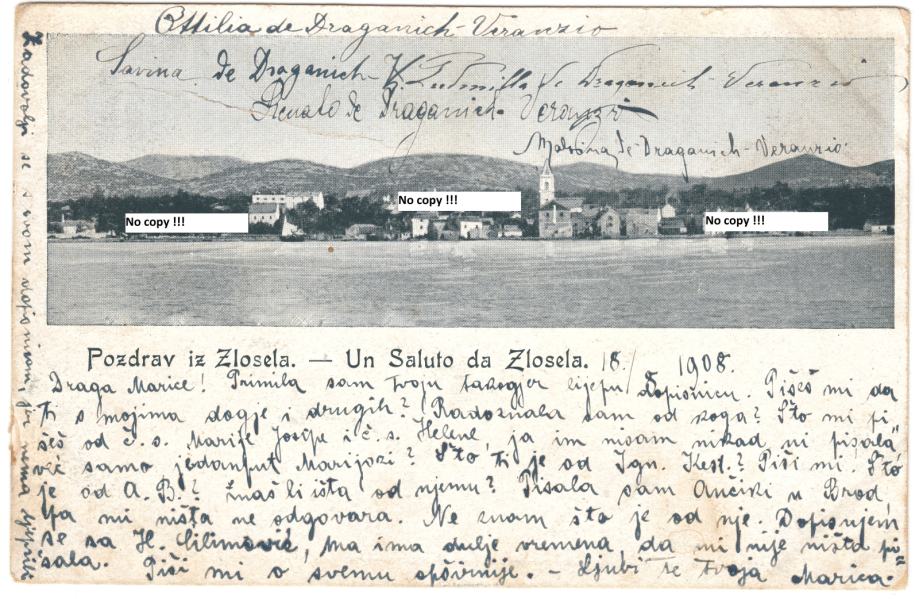 Ottilia de Draganich-Veranzio
Savina de Draganich-V. Ludmilla de Draganich-Veranzio
Renato de Draganich-Veranzio
Malvina de Draganich-Veranzio.
No copy !!!
No copy !!!
No copy !!!
Pozdrav iz Zlosela. — Un Saluto da Zlosela. 18/8 1908.
Draga Marice! Primila sam tvoju takogjer lijepu dopisnicu. Pišeš mi da
ti s mojima dogje i drugih? Radoznala sam od koga? Što mi pi„
šeš od č. s. Marije Josipe i č. s. Helene, ja im nisam nikad ni pisala
već samo jedanput Marijozi? Što ti je od Ign. Kest.? Piši mi! Što
je od A. B.? Imaš li išta od njemu? Pisala sam Ančiki u Brod,
pa mi ništa ne odgovara. Ne znam što je od nje. Dopisujem
se sa H. Silimović, ma ima dulje vremena da mi nije ništa pi„
sala. Piši mi o svemu opširnije. - Ljubi te tvoja Marica.
Zadovolji se s ovom dopisnicom jer nema